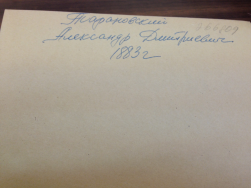 Тарановский
Александр Дмитриевич
1883 г